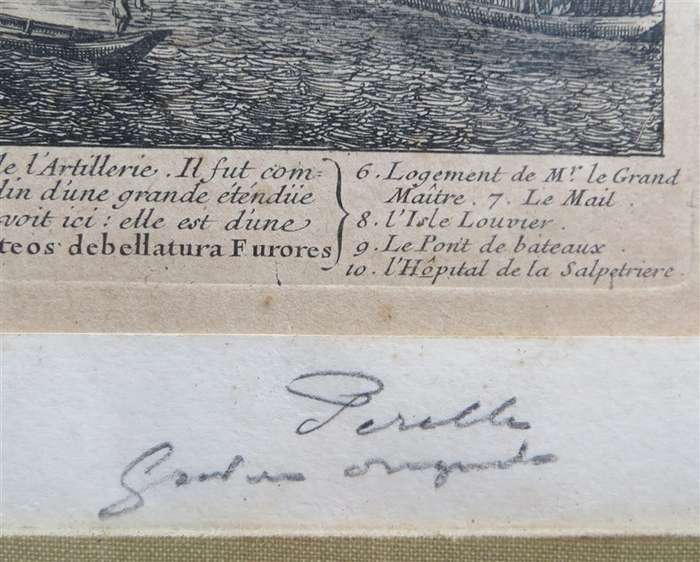 le l'Artillerie. Il fut com=
din d'une grande éténdüe
voit ici: elle est d'une
teos debellatura Furores
6. Logement de Mr. le Grand
Maître. 7. Le Mail.
8. l'Isle Louvier.
9. Le Pont de bateaux.
10. l'Hôpital de la Salpetriere.
Perelle
Gravure originale